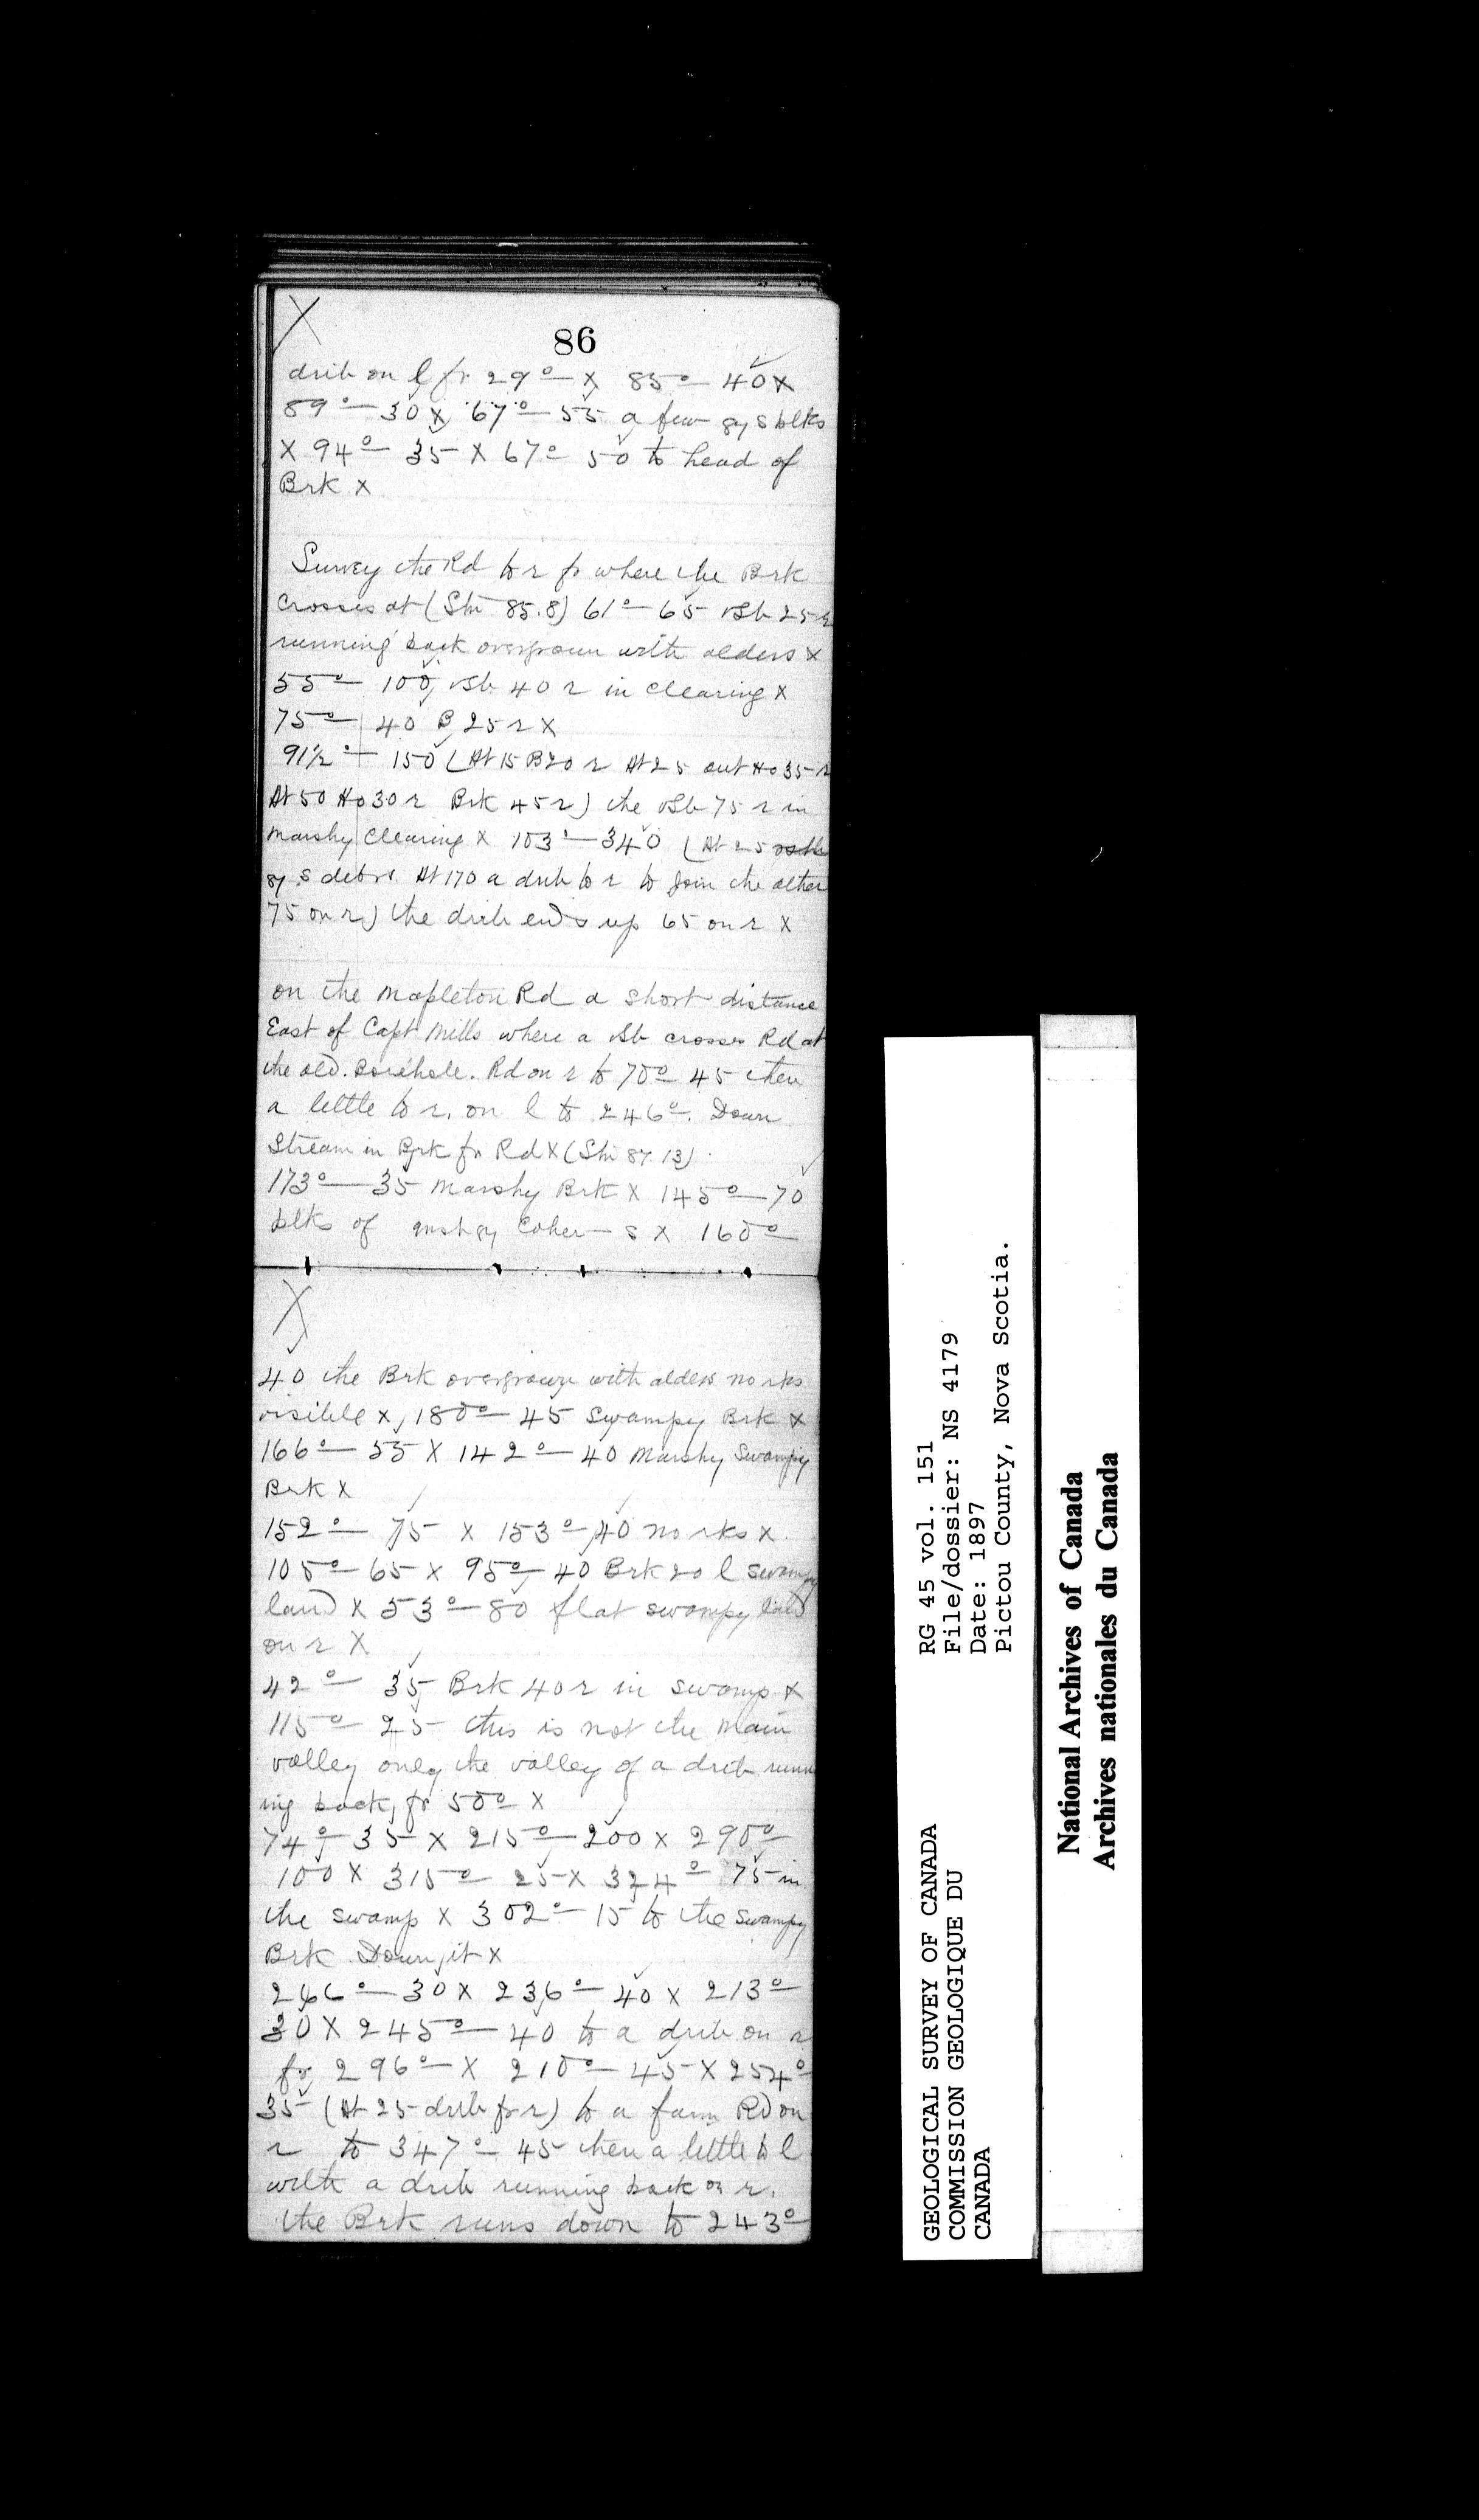 X
86
drib on l fr 29° X 85° 40 X
89° 30 X 67° 55 a few gy s blks
X 94° 35 X 67° 50 to head of
Brk X
Survey the Rd to r fr where the Brk
crosses at (Stn 85.8) 61° 65 vSb 25 r
running back overgrown with alders X
55° 100 vSb 40 r in clearing X
75° 40 B 25 r X
91½° 150 (At 15 B 20 r At 25 out Ho 35 r
At 50 Ho 30 r Brk 45 r) the vSb 75 r in
marshy clearing X 103° 340 (At 25
gy s debris. At 170 a drib to r to join the other
75 on r) the drib ends up 65 on r X
on the Mapleton Rd a short distance
East of Capt Mills where a vSb crosses Rd at
the old. Borehole. Rd on r to 70° 45 then
a little to r. on l to 246°. Down
Stream in Brk fr Rd X (Stn 87.13)
173° 35 Marshy Brk X 145° 70
blks of gy Coher s X 160°
X
40 the Brk overgrown with alders no rks
visible X 180° 45 Swampy Brk X
166° 55 X 142° 40 Marshy Swampy
Brk X
152° 75 X 153° 40 no rks X
105° 65 X 95° 40 Brk 20 l swampy
land X 53° 80 flat swampy land
on r X
42° 35 Brk 40 r in swamp X
115° 25 this is not the main
valley only the valley of a drib runn
ing back fr 50° X
74° 35 X 215° 200 X 290°
100 X 315° 25 X 324° 75 in
the swamp X 302° 15 to the swampy
Brk Down it X
266° 30 X 236° 40 X 213°
30 X 245° 40 to a drib on r
fr 296° X 210° 45 X 254°
35 (At 25 drib fr r) to a farm Rd on
r to 347° 45 then a little to l
with a drib running back on r.
the Brk runs down to 243°
RG 45 vol. 151
File/dossier: NS 4179
Date: 1897
Pictou County, Nova Scotia.
GEOLOGICAL SURVEY OF CANADA
COMMISSION GEOLOGIQUE DU
CANADA
National Archives of Canada
Archives nationales du Canada